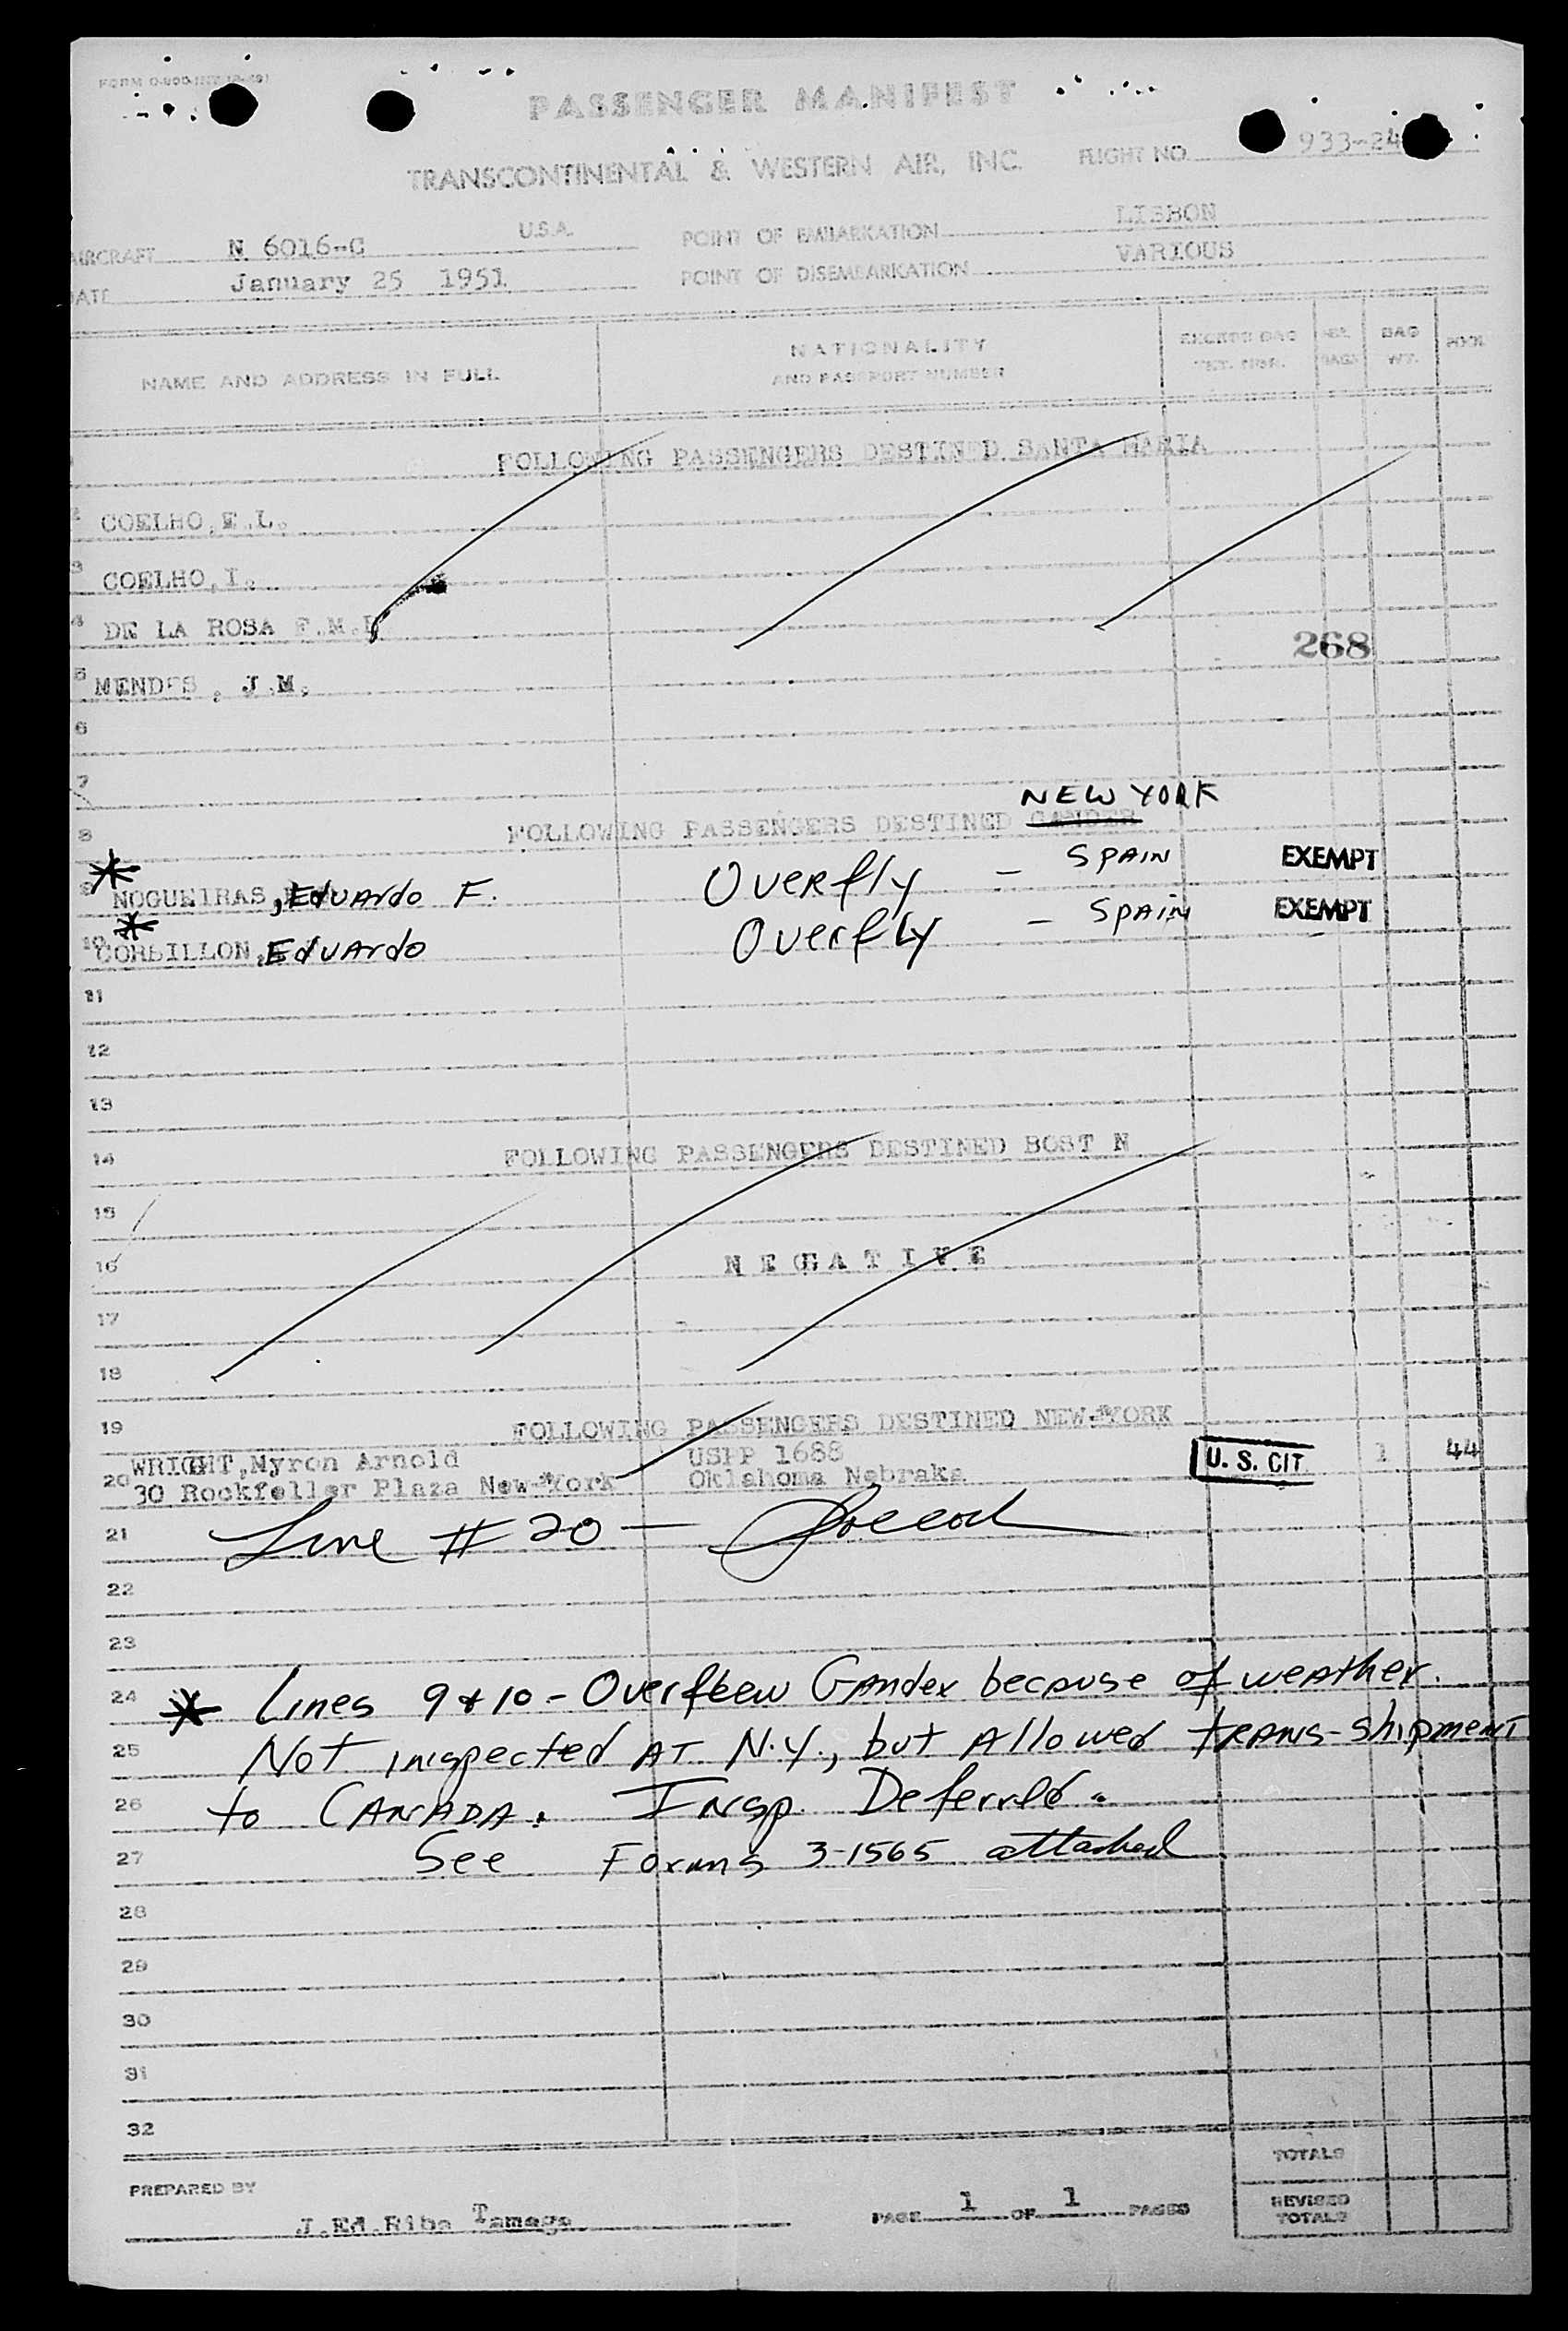 PASSENGER MANIFEST
TRANSCONTINENTAL & WESTERN AIR, INC. FLIGHT NO. 933-24
AIRCRAFT N 6016-C U.S.A. POINT OF EMBARKATION LISBON
DATE January 25 1951 POINT OF DISEMBARKATION VARIOUS
NAME AND ADDRESS IN FULL NATIONALITY AND PASSPORT NUMBER EXCESS BAG TKT. NBR. BAGS BAG WT.
FOLLOWING PASSENGERS DESTIN D SANTA MARIA
2 COELHO, E.L.
3 COELHO, I.
4 DE LA ROSA F.M.
268
5 MENDES, J.M.
6
7
NEW YORK
8 FOLLOWING PASSENGERS DESTINED GANDER
* SPAIN EXEMPT
9 NOGUEIRAS, Eduardo F. Overfly -
* - SPAIN EXEMPT
10 CORBILLON, Eduardo Overfly
11
12
13
14 FOLLOWING PASSENGERS DESTINED BOST N
15
16 NEGATIVE
17
18
19 FOLLOWING PASSENGERS DESTINED NEW-YORK
WRIGHT, Myron Arnold USPP 1688 U. S. CIT. 1 44
20 30 Rockfeller Plaza New-York Oklahoma Nebraka
21 Line # 20 —
22
23
24 * Lines 9 & 10 - Overflew Gander because of weather.
25 Not inspected AT N.Y., but Allowed trans-shipment
26 to CANADA. Insp. Deferred.
27 See Forms 3-1565 attached
28
29
30
31
32
TOTALS
PREPARED BY J.Ed.Riba Tamega PAGE 1 OF 1 PAGES REVISED TOTALS